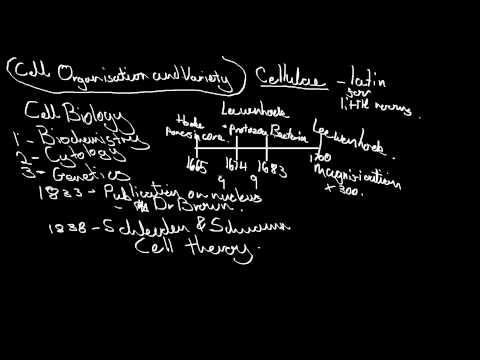 Cell Organisation and Variety
Cellulae - latin
for
little rooms.
Cell Biology
1 - Biochemistry
2 - Cytology
3 - Genetics
Leeuwenhoek
- protozoa
Bacteria
Leeuwenhoek.
1665 1674 1683 1700
9 9
magnification
x 300.
1833 - Publication on nucleus
- Dr Brown.
1838 - Schleiden & Schwann
Cell theory.